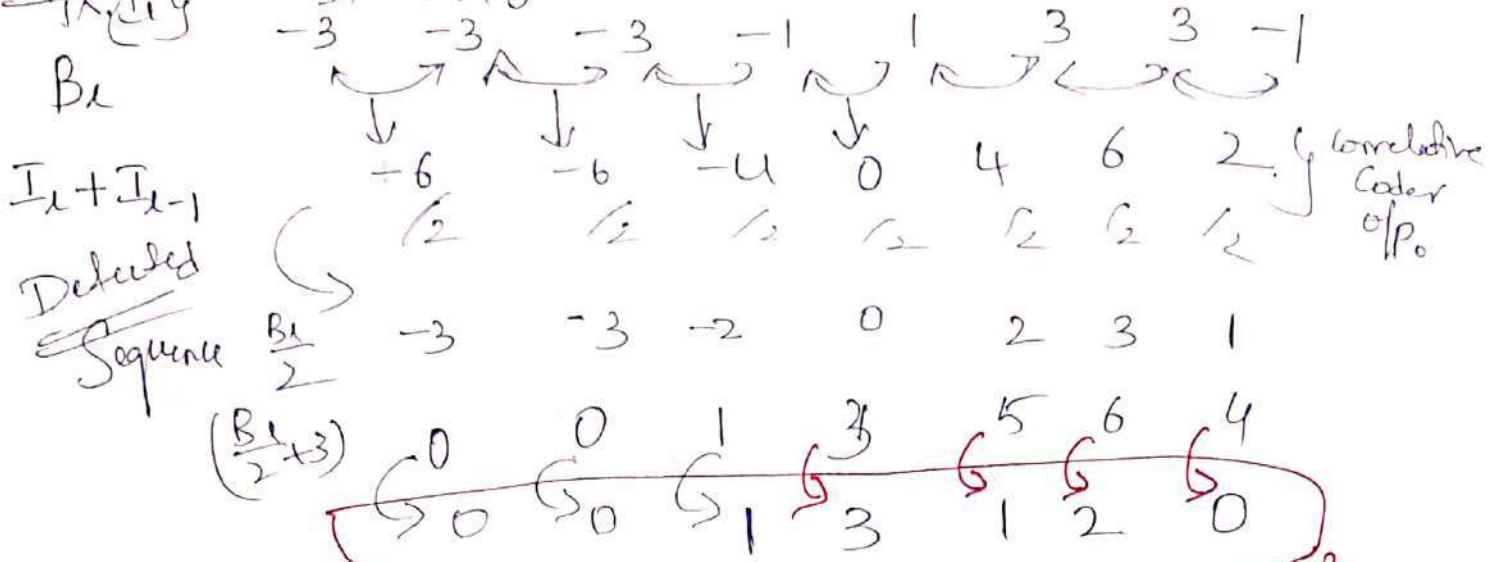 -3 -3 -3 -1 1 3 3 -1
Bℓ
Iℓ + Iℓ-1 -6 -6 -4 0 4 6 2 } Correlative Coder o/p.
/2 /2 /2 /2 /2 /2 /2
Detected
Sequence Bℓ/2 -3 -3 -2 0 2 3 1
(Bℓ/2 + 3) 0 0 1 3 5 6 4
0 0 1 3 1 2 0